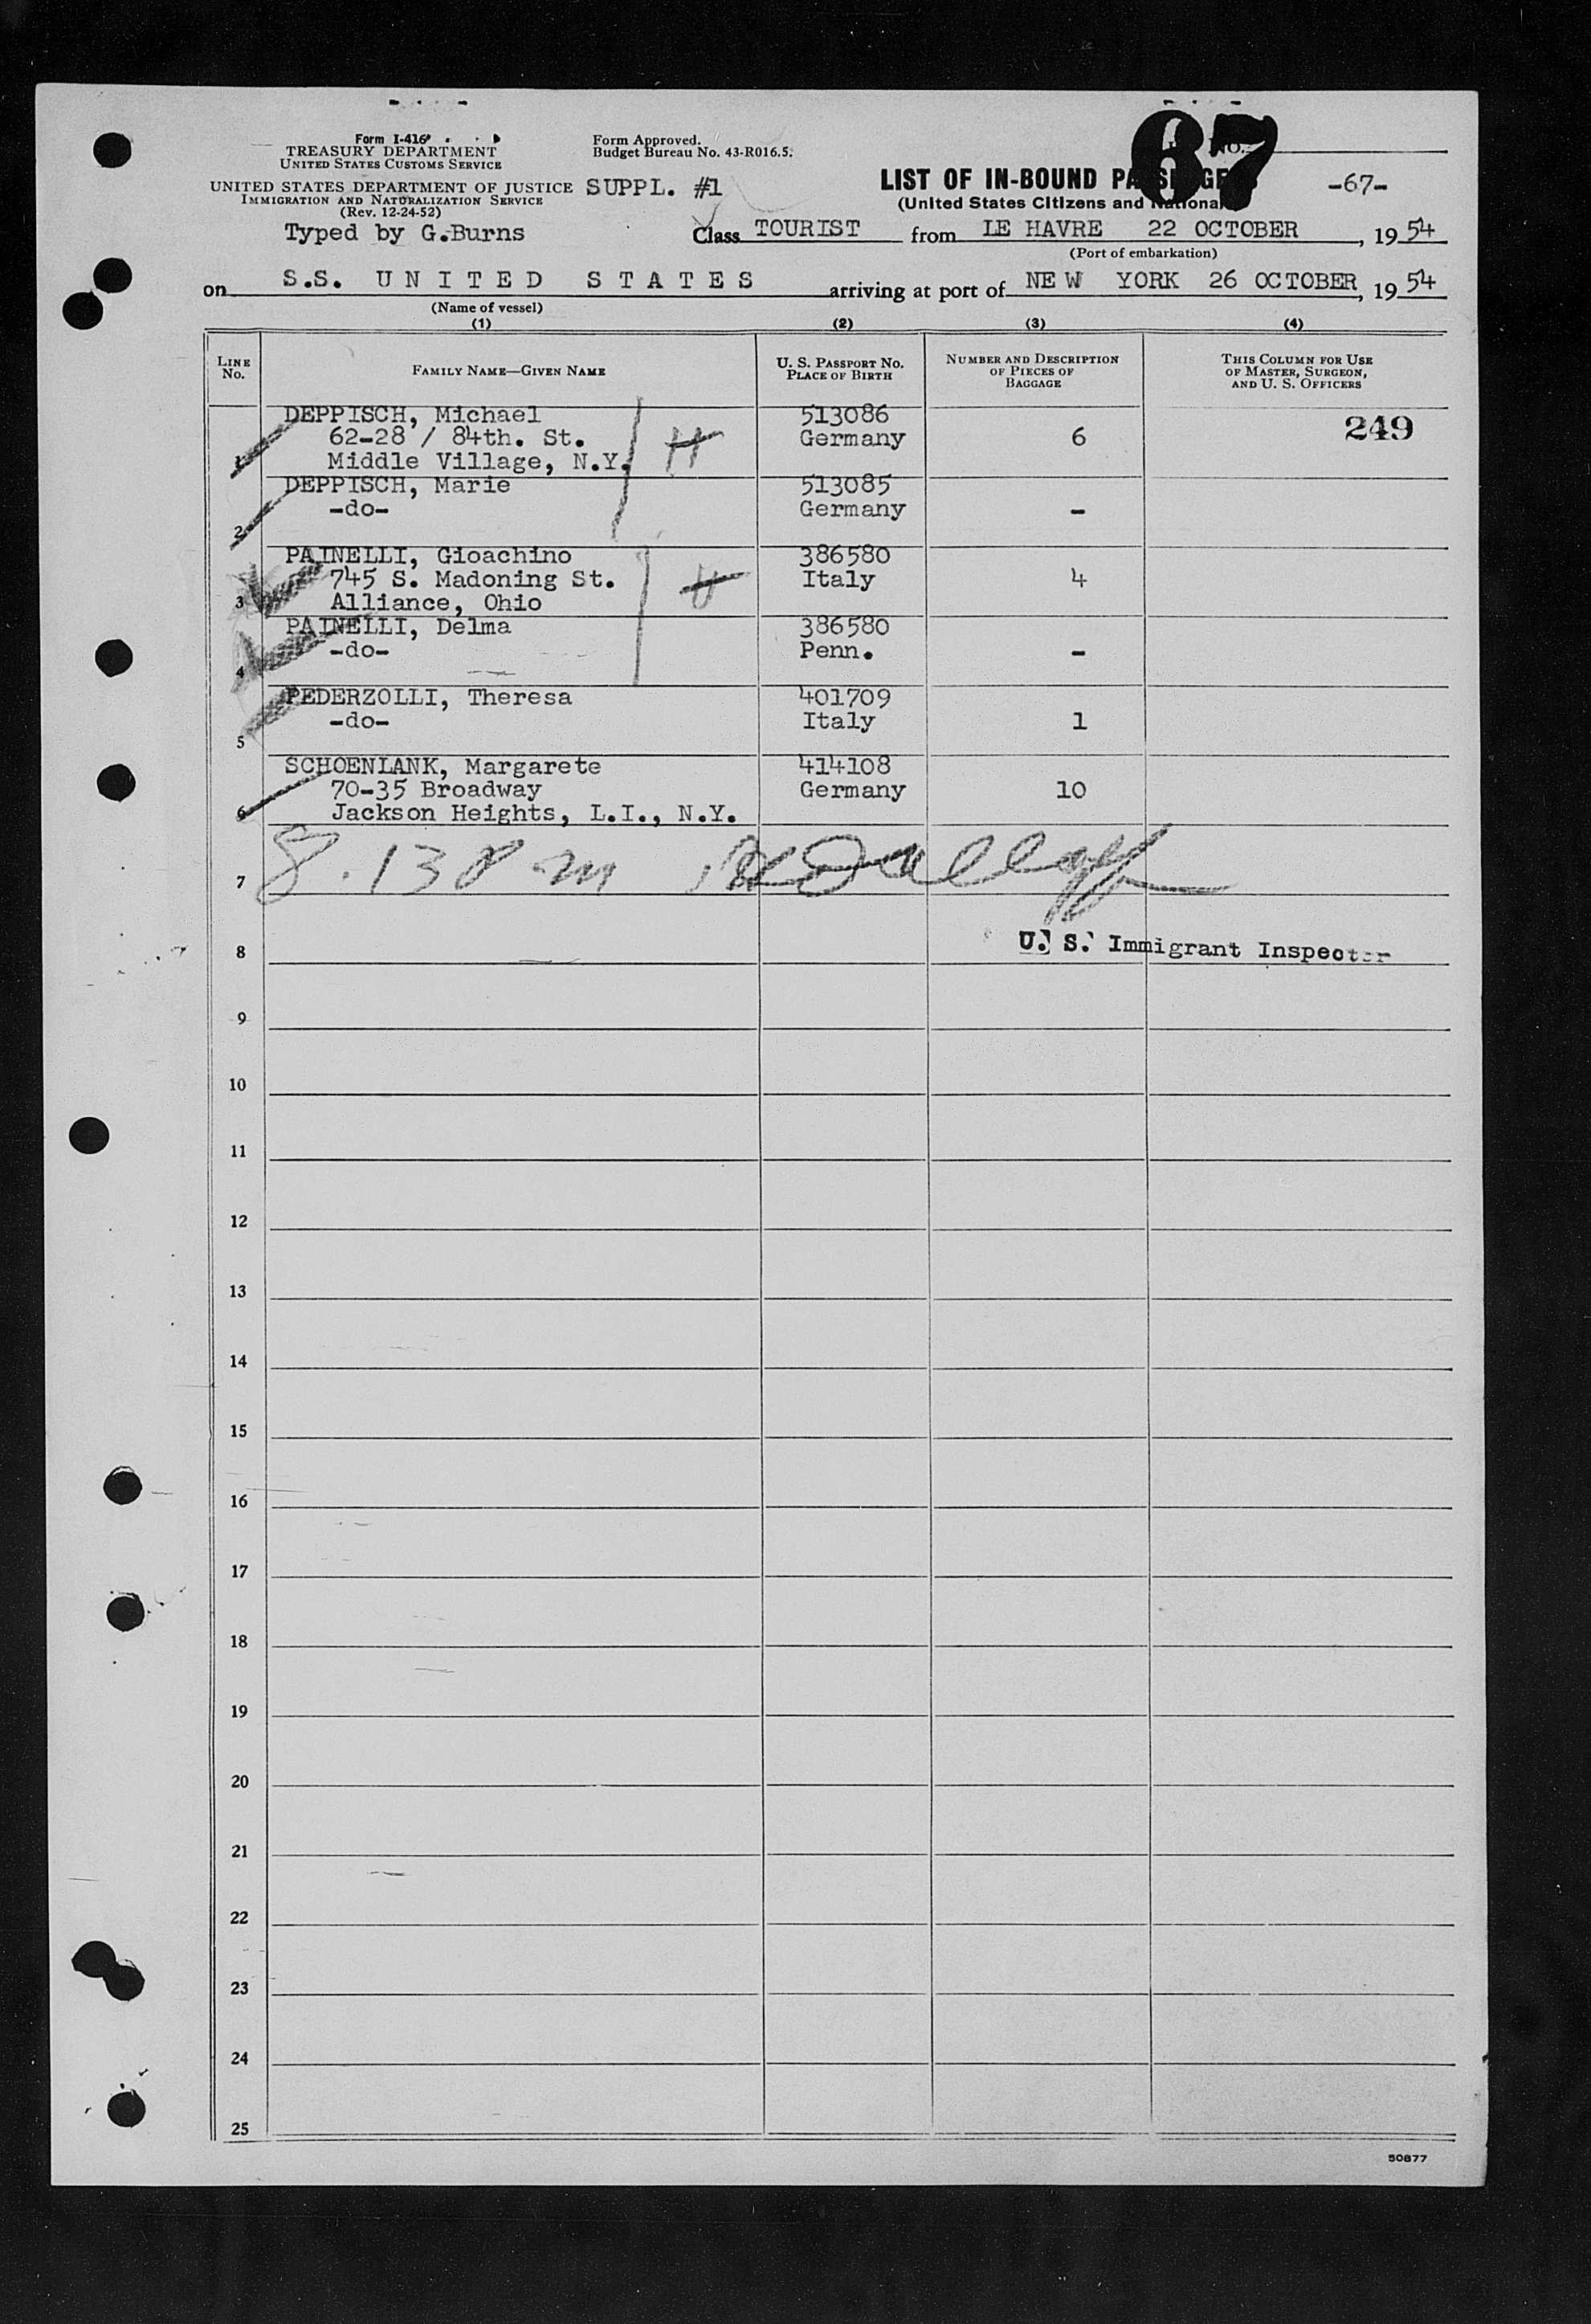 Form I-416
TREASURY DEPARTMENT
UNITED STATES CUSTOMS SERVICE
UNITED STATES DEPARTMENT OF JUSTICE
IMMIGRATION AND NATURALIZATION SERVICE
(Rev. 12-24-52)
Typed by G.Burns
Form Approved.
Budget Bureau No. 43-R016.5.
SUPPL. #1
67
LIST OF IN-BOUND PASSENGERS
(United States Citizens and Nationals)
-67-
Class TOURIST from LE HAVRE 22 OCTOBER, 1954
(Port of embarkation)
on S.S. UNITED STATES arriving at port of NEW YORK 26 OCTOBER, 1954
(Name of vessel)
(1) (2) (3) (4)
LINE No.
FAMILY NAME—GIVEN NAME
U. S. PASSPORT NO.
PLACE OF BIRTH
NUMBER AND DESCRIPTION
OF PIECES OF
BAGGAGE
THIS COLUMN FOR USE
OF MASTER, SURGEON,
AND U. S. OFFICERS
DEPPISCH, Michael 513086 249
62-28 / 84th. St. H Germany 6
1 Middle Village, N.Y.
DEPPISCH, Marie 513085
-do- Germany -
2
PAINELLI, Gioachino 386580
745 S. Madoning St. Italy 4
3 Alliance, Ohio
PAINELLI, Delma 386580
-do- Penn. -
4
PEDERZOLLI, Theresa 401709
-do- Italy 1
5
SCHOENLANK, Margarete 414108
70-35 Broadway Germany 10
6 Jackson Heights, L.I., N.Y.
7
U. S. Immigrant Inspector
8
9
10
11
12
13
14
15
16
17
18
19
20
21
22
23
24
25
50877